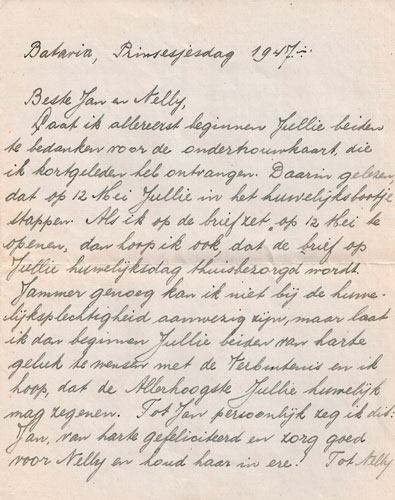 Batavia, Prinsesjesdag 1947.
Beste Jan en Nelly,
Laat ik allereerst beginnen Jullie beiden
te bedanken voor de ondertrouwkaart, die
ik kortgeleden heb ontvangen. Daarin gelezen,
dat op 12 Mei Jullie in het huwelijksbootje
stappen. Als ik op de brief zet "op 12 Mei te
openen, dan hoop ik ook, dat de brief op
Jullie huwelijksdag thuisbezorgd wordt
Jammer genoeg kan ik niet bij de huwe-
lijksplechtigheid aanwezig zijn, maar laat
ik dan beginnen Jullie beiden van harte
geluk te wensen met de Verbintenis en ik
hoop, dat de Allerhoogste Jullie huwelijk
mag zegenen. Tot Jan persoonlijk zeg ik dit:
Jan, van harte gefeliciteerd en zorg goed
voor Nelly en houd haar in ere! Tot Nelly